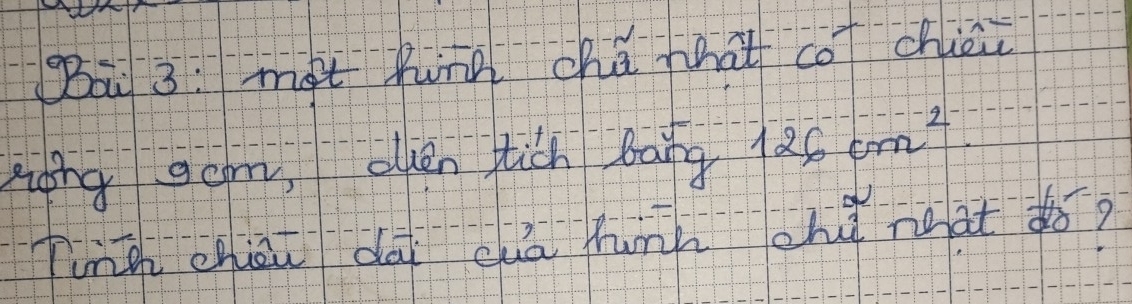 Bài 3: một hình chữ nhật có chiều
rộng 9cm, diện tích bằng 126 cm²
Tính chiều dài của hình chữ nhật đó?